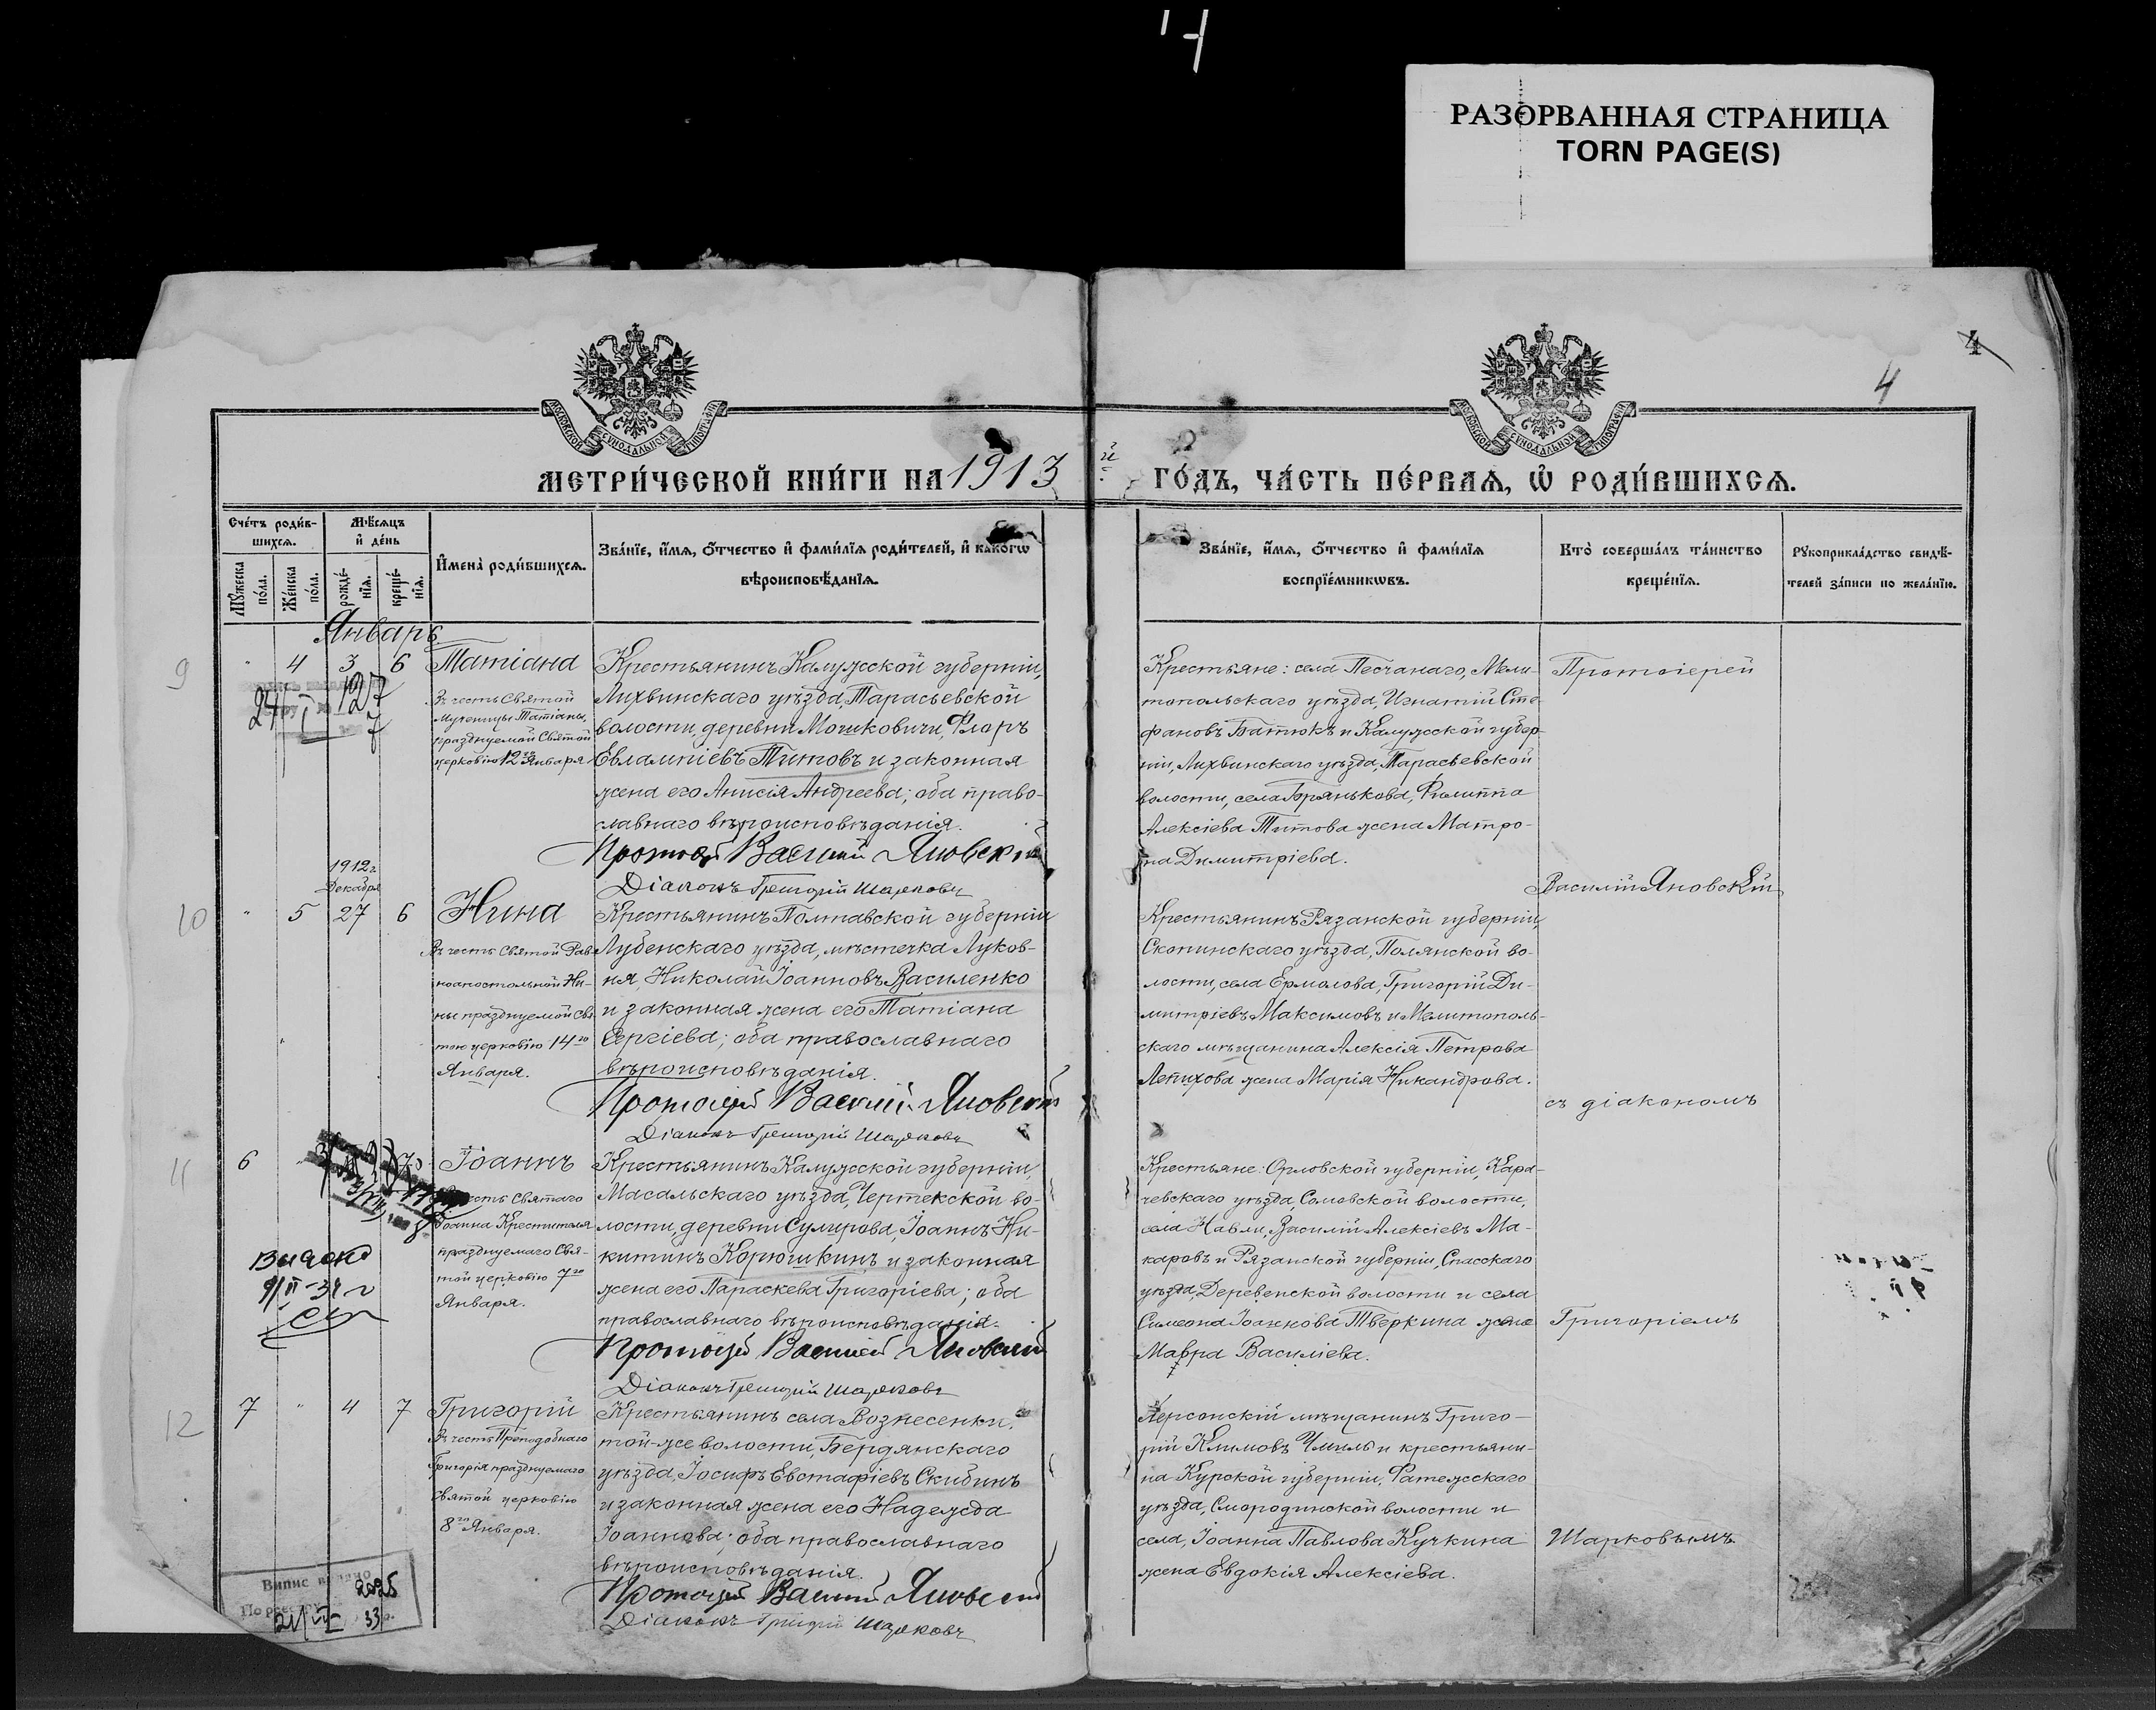 РАЗОРВАННАЯ СТРАНИЦА
TORN PAGE(S)
4
4
МОСКОВСКОЙ СѴНОДАЛЬНОЙ ТИПОГРАФІИ
МОСКОВСКОЙ СѴНОДАЛЬНОЙ ТИПОГРАФІИ
МЕТРИ́ЧЕСКОЙ КНИ́ГИ НА 1913 й ГО́ДЪ, ЧА́СТЬ ПЕ́РВАѦ, Ѡ҆ РОДИ́ВШИХСѦ.
Сче́тъ роди́в-
шихсѧ.
Мѣ́сѧцъ
и҆ де́нь
Мꙋ́жеска
по́ла.
Же́нска
по́ла.
рожде́-
нїѧ.
креще́-
нїѧ.
И҆мена̀ роди́вшихсѧ.
Зва́нїе, и҆́мѧ, ѻ҆́тчество и҆ фами́лїѧ роди́телей, и҆ како́гѡ
вѣроисповѣ́данїѧ.
Зва́нїе, и҆́мѧ, ѻ҆́тчество и҆ фами́лїѧ
воспрїе́мникѡвъ.
Кто̀ соверша́лъ та́инство
креще́нїѧ.
Рꙋкоприкла́дство свидѣ́-
телей за́писи по жела́нїю.
Январь
9
" 4 3 6
Татіана
Въ честь Святой
Мученицы Татіаны,
празднуемой Святой
церковію 12го Января
Крестьянинъ Калужской губерніи,
Лихвинскаго уѣзда, Тарасьевской
волости, деревни Мошковичи, Флоръ
Евлампіевъ Титовъ и законная
жена его Анисія Андреева; оба право-
славнаго вѣроисповѣданія.
Протоіерей Василій Яновскій
Діаконъ Григорій Шарковъ
Крестьяне: села Песчанаго, Мели-
топольскаго уѣзда, Игнатій Сте-
фановъ Батюкъ и Калужской губер-
ніи, Лихвинскаго уѣзда, Тарасьевской
волости, села Горянькова, Филиппа
Алексіева Титова жена Матро-
на Димитріева.
Протоіерей
Василій Яновскій
1912 г.
Декабря
10
" 5 27 6
Нина
Въ честь Святой Рав-
ноапостольной Ни-
ны празднуемой Свя-
тою церковію 14го
Января.
Крестьянинъ Полтавской губерніи
Лубенскаго уѣзда, мѣстечка Луком-
ья, Николай Іоанновъ Василенко
и законная жена его Татіана
Сергіева; оба православнаго
вѣроисповѣданія.
Протоіерей Василій Яновскій
Діаконъ Григорій Шарковъ
Крестьянинъ Рязанской губерніи,
Скопинскаго уѣзда, Полянской во-
лости, села Ермолова, Григорій Ди-
митріевъ Максимовъ и Мелитополь-
скаго мѣщанина Алексія Петрова
Лепихова жена Марія Никандрова.
съ діакономъ
11
6 "
Іоаннъ
честь Святаго
Іоанна Крестителя
празднуемаго Свя-
той церковію 7го
Января.
Крестьянинъ Калужской губерніи,
Масальскаго уѣзда, Чертекской во-
лости, деревни Сулихова, Іоаннъ Ни-
китинъ Корюшкинъ и законная
жена его Параскева Григоріева; оба
православнаго вѣроисповѣданія.
Протоіерей Василій Яновскій
Діаконъ Григорій Шарковъ
Крестьяне: Орловской губерніи, Кара-
чевскаго уѣзда, Сомовской волости,
села Навли, Василій Алексіевъ Ма-
каровъ и Рязанской губерніи, Спасскаго
уѣзда, Деревенской волости и села
Симеона Іоаннова Тверкина жена
Мавра Василіева.
Григоріемъ
12
7 " 4 7
Григорій
Въ честь Преподобнаго
Григорія празднуемаго
Святой церковію
8го Января.
Крестьянинъ села Вознесенки,
той-же волости, Бердянскаго
уѣзда, Іосифъ Евстафіевъ Скибинъ
и законная жена его Надежда
Іоаннова; оба православнаго
вѣроисповѣданія.
Протоіерей Василій Яновскій
Діаконъ Григорій Шарковъ
Херсонскій мѣщанинъ Григо-
рій Климовъ Чмиль и крестьяни-
на Курской губерніи, Ратежскаго
уѣзда, Смородинской волости и
села, Іоанна Павлова Кучкина
жена Евдокія Алексіева.
Шарковымъ
Випис видано
По реєстру 2025